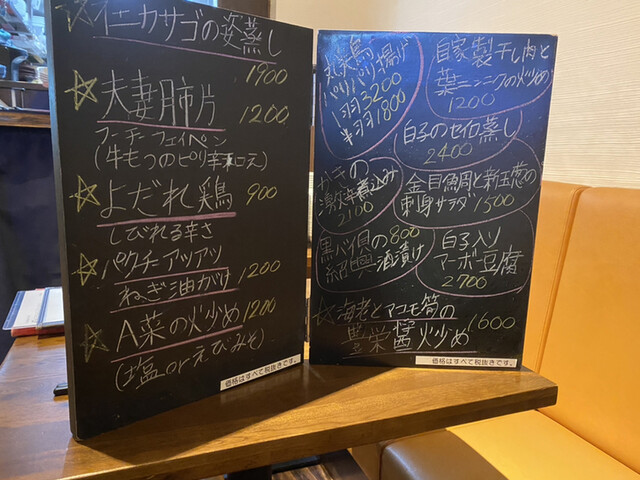 イニカサゴの姿蒸し
1900
夫妻肺片
1200
フーチーフェイペン
(牛もつのピリ辛和え)
よだれ鶏 900
しびれる辛さ
パクチーアツアツ
ねぎ油がけ 1200
A菜の炒め 1200
(塩orえびみそ)
価格はすべて税抜きです。
丸鶏
パリパリ揚げ
1羽3200
半羽1800
自家製干し肉と
葉ニンニクの炒め
1200
白子のセイロ蒸し
2400
かきの
煮込み
2100
金目鯛と新玉葱の
刺身サラダ 1500
黒バイ貝の 800
紹興酒漬け
白子入り
マーボ豆腐
2700
海老とマコモ筍の
豊栄醤炒め 1600
価格はすべて税抜きです。